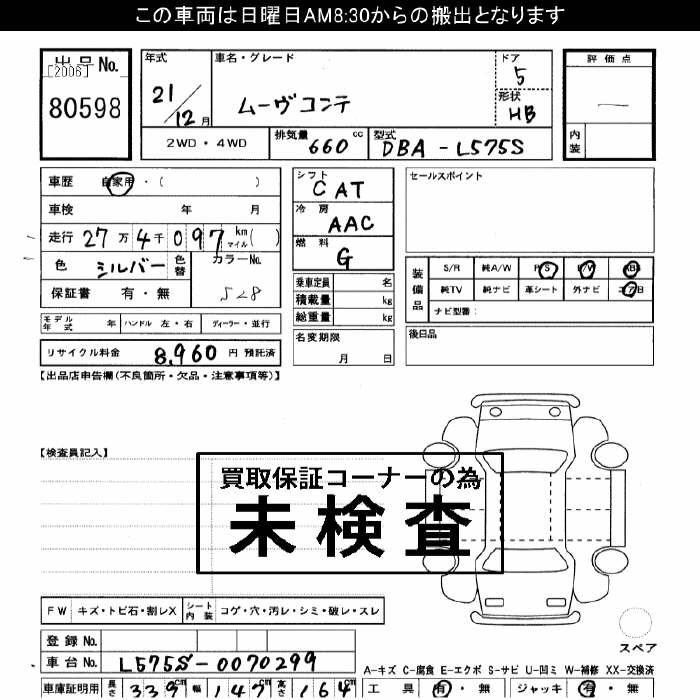 この車両は日曜日AM8:30からの搬出となります
出品No.
[2006]
80598
年式
21/12月
車名・グレード
ムーヴコンテ
ドア
5
形状
HB
2WD・4WD
排気量
660 cc
型式
DBA-L575S
評価点
—
内装
車歴 自家用・( )
車検 年 月
走行 27万4千097 km マイル( )
色 シルバー 色替 カラーNo.
528
保証書 有・無
モデル年式 年 ハンドル 左・右 ディーラー・並行
リサイクル料金 8,960 円 預託済
シフト
CAT
冷房
AAC
燃料
G
乗車定員 名
積載量 kg
総重量 kg
名変期限
月 日
セールスポイント
装備品
S/R 純A/W P/S P/W ABS
純TV 純ナビ 革シート 外ナビ エアB
ナビ型番:
後日品
【出品店申告欄(不良箇所・欠品・注意事項等)】
【検査員記入】
買取保証コーナーの為
未検査
FW キズ・トビ石・割レX シート内装 コゲ・穴・汚レ・シミ・破レ・スレ
スペア
登録No.
車台No. L575S-0070299
A-キズ C-腐食 E-エクボ S-サビ U-凹ミ W-補修 XX-交換済
車庫証明用 長さ 339cm 幅 147cm 高さ 164cm
工具 有・無 ジャッキ 有・無